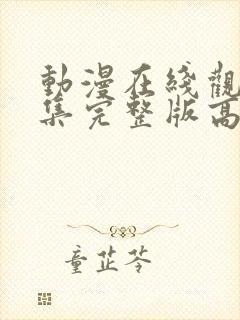 動漫在綫觀
集完整版高
童芷苓